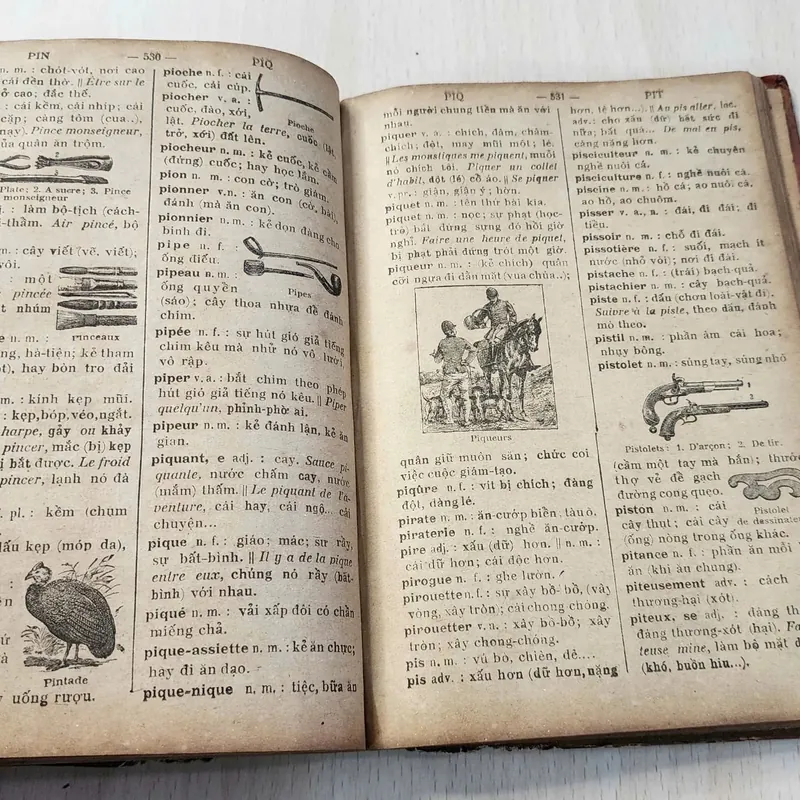 PIN — 530 — PIQ
n. m. : chót-vót, nơi cao
cái đền thờ. || Être sur le
ở cao; đắc thế.
: cái kềm, cái nhíp; cái
cặp; càng tôm (cua..),
nay). Pince monseigneur,
của quân ăn trộm.
Plate; 2. A sucre; 3. Pince
monseigneur
j. : làm bộ-tịch (cách-
thảm. Air pincé, bộ
: cây viết (vẽ, viết);
vòi.
: một
pincée
t nhúm
Pinceaux
ng, hà-tiện; kẻ tham
ột), hay bòn tro đải
m. : kính kẹp mũi.
: kẹp, bóp, véo, ngắt.
harpe, gảy ou khảy
pincer, mắc (bị) kẹp
bị bắt được. Le froid
pincer, lạnh nó đà
f. pl. : kềm (chụm
dấu kẹp (móp da),
Pintade
uống rượu.
pioche n. f. : cái
cuốc, cái cúp.
Pioche
piocher v. a. :
cuốc, đào, xới,
lật. Piocher la terre, cuốc (lật,
trở, xới) đất lên.
piocheur n. m. : kẻ cuốc, kẻ cầm
(đứng) cuốc; hay học lắm.
pion n. m. : con cờ; trò giám.
pionner v. n. : ăn con (cờ, bài),
đánh (mà ăn con).
pionnier n. m. : kẻ dọn đàng cho
binh đi.
pipe n. f. :
ống điếu.
Pipes
pipeau n. m. :
ống quyển
(sáo); cây thoa nhựa để đánh
chim.
pipée n. f. : sự hút gió giả tiếng
chim kêu mà nhử nó vô lưới,
vô rập.
piper v. a. : bắt chim theo phép
hút gió giả tiếng nó kêu. || Piper
quelqu'un, phỉnh-phờ ai.
pipeur n. m. : kẻ đánh lận, kẻ ăn
gian.
piquant, e adj. : cay. Sauce pi-
quante, nước chấm cay, nước
(mắm) thấm. || Le piquant de l'a-
venture, cái hay, cái ngộ... cái
chuyện...
pique n. f. : giáo; mác; sự rầy,
sự bất-bình. || Il y a de la pique
entre eux, chúng nó rầy (bất-
bình) với nhau.
piqué n. m. : vải xấp đôi có chần
miếng chả.
pique-assiette n. m. : kẻ ăn chực;
hay đi ăn dạo.
pique-nique n. m. : tiệc, bữa ăn
PIQ — 531 — PIT
mỗi người chung tiền mà ăn với
nhau.
piquer v. a. : chích, đâm, châm-
chích; đột, may mũi một; lẻ.
|| Les monstiques me piquent, muỗi
nó chích tôi. Piquer un collet
d'habit, đột (16) cổ áo. || Se piquer
v. pr. : giận, giận ý; hờn.
piquet n. m. : tên thứ bài kia.
piquet n. m. : nọc; sự phạt (học-
trò) bắt đứng sựng đó hồi giờ
nghỉ. Faire une heure de piquet,
bị phạt phải đứng trót một giờ.
piqueur n. m. : (kẻ chích) quân
cỡi ngựa đi dẫn mặt (vua chúa..);
Piqueurs
quân giữ muôn săn; chức coi
việc cuộc giám-tạo.
piqûre n. f. : vít bị chích; đàng
đột, đàng lé.
pirate n. m. : ăn-cướp biển, tàu ô.
piraterie n. f. : nghề ăn-cướp.
pire adj. : xấu (dữ) hơn. || n. m. :
cái dữ hơn; cái độc hơn.
pirogue n. f. : ghe lườn.
pirouette n. f. : sự xây bồ-bồ, (vảy
vòng, xây tròn); cái chong chóng.
pirouetter v. n. : xây bồ-bồ; xây
tròn; xây chong-chóng.
pis n. m. : vú bò, chiên, dê....
pis adv. : xấu hơn (dữ hơn, nặng
hơn, tệ hơn...). || Au pis aller, loc.
adv.: cho xấu (dữ) bất sức đi
nữa; bất quá... De mal en pis,
càng nặng hơn.
pisciculteur n. m. : kẻ chuyên
nghề nuôi cá.
pisciculture n. f. : nghề nuôi cá.
piscine n. m. : hồ cá; ao nuôi cá,
ao hồ, ao chuôm.
pisser v. a., n. : đái, đi đái; đi
tiểu.
pissoir n. m. : chỗ đi đái.
pissotière n. f. : suối, mạch ít
nước (nhỏ vòi); nơi đi đái.
pistache n. f. : (trái) bạch-quả.
pistachier n. m. : cây bạch-quả.
piste n. f. : dấu (chơn loài-vật đi).
Suivre à la piste, theo dấu, đánh
mò theo.
pistil n. m. : phần âm cái hoa;
nhụy bông.
pistolet n. m. : súng tay, súng nhỏ
Pistolets : 1. D'arçon; 2. De tir.
(cầm một tay mà bắn); thước
thợ vẽ để gạch
đường cong quẹo.
Pistolet
de dessinateur
piston n. m. : cái
cây thụt; cái cây
(ống) nòng trong ống khác.
pitance n. f. : phần ăn mỗi
ăn (khi ăn chung).
piteusement adv. : cách
thương-hại (xót).
piteux, se adj. : đàng th
đáng thương-xót (hại). Fa
teuse mine, làm bộ mặt d
(khó, buồn hiu...).